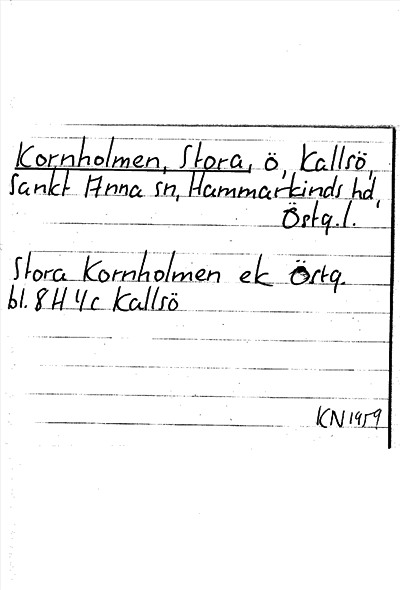 Kornholmen, Stora, ö, Kallsö,
Sankt Anna sn, Hammarkinds hd,
Östg. l.
Stora Kornholmen ek Östg.
bl. 8 H 4 c Kallsö
KN 1959